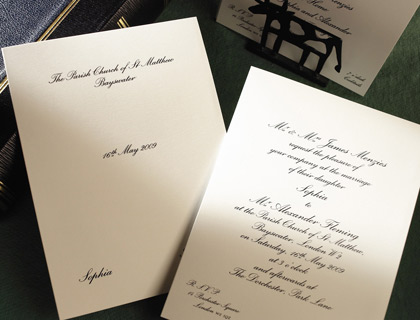 The Parish Church of St Matthew
Bayswater
16th May 2009
Sophia
Mr & Mrs James Menzies
request the pleasure of
your company at the marriage
of their daughter
Sophia
to
Mr Alexander Fleming
at the Parish Church of St Matthew,
Bayswater, London W2
on Saturday, 16th May 2009
at 3 o'clock
and afterwards at
The Dorchester, Park Lane
R S V P
Square
London
Menzies
and
Sophia and Alexander